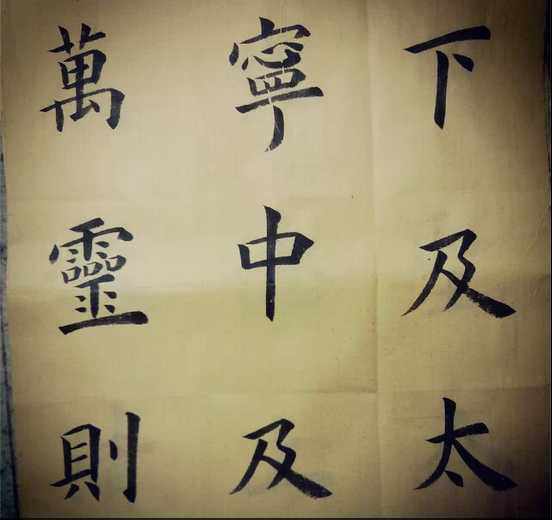 下及太
寧中及
萬靈則